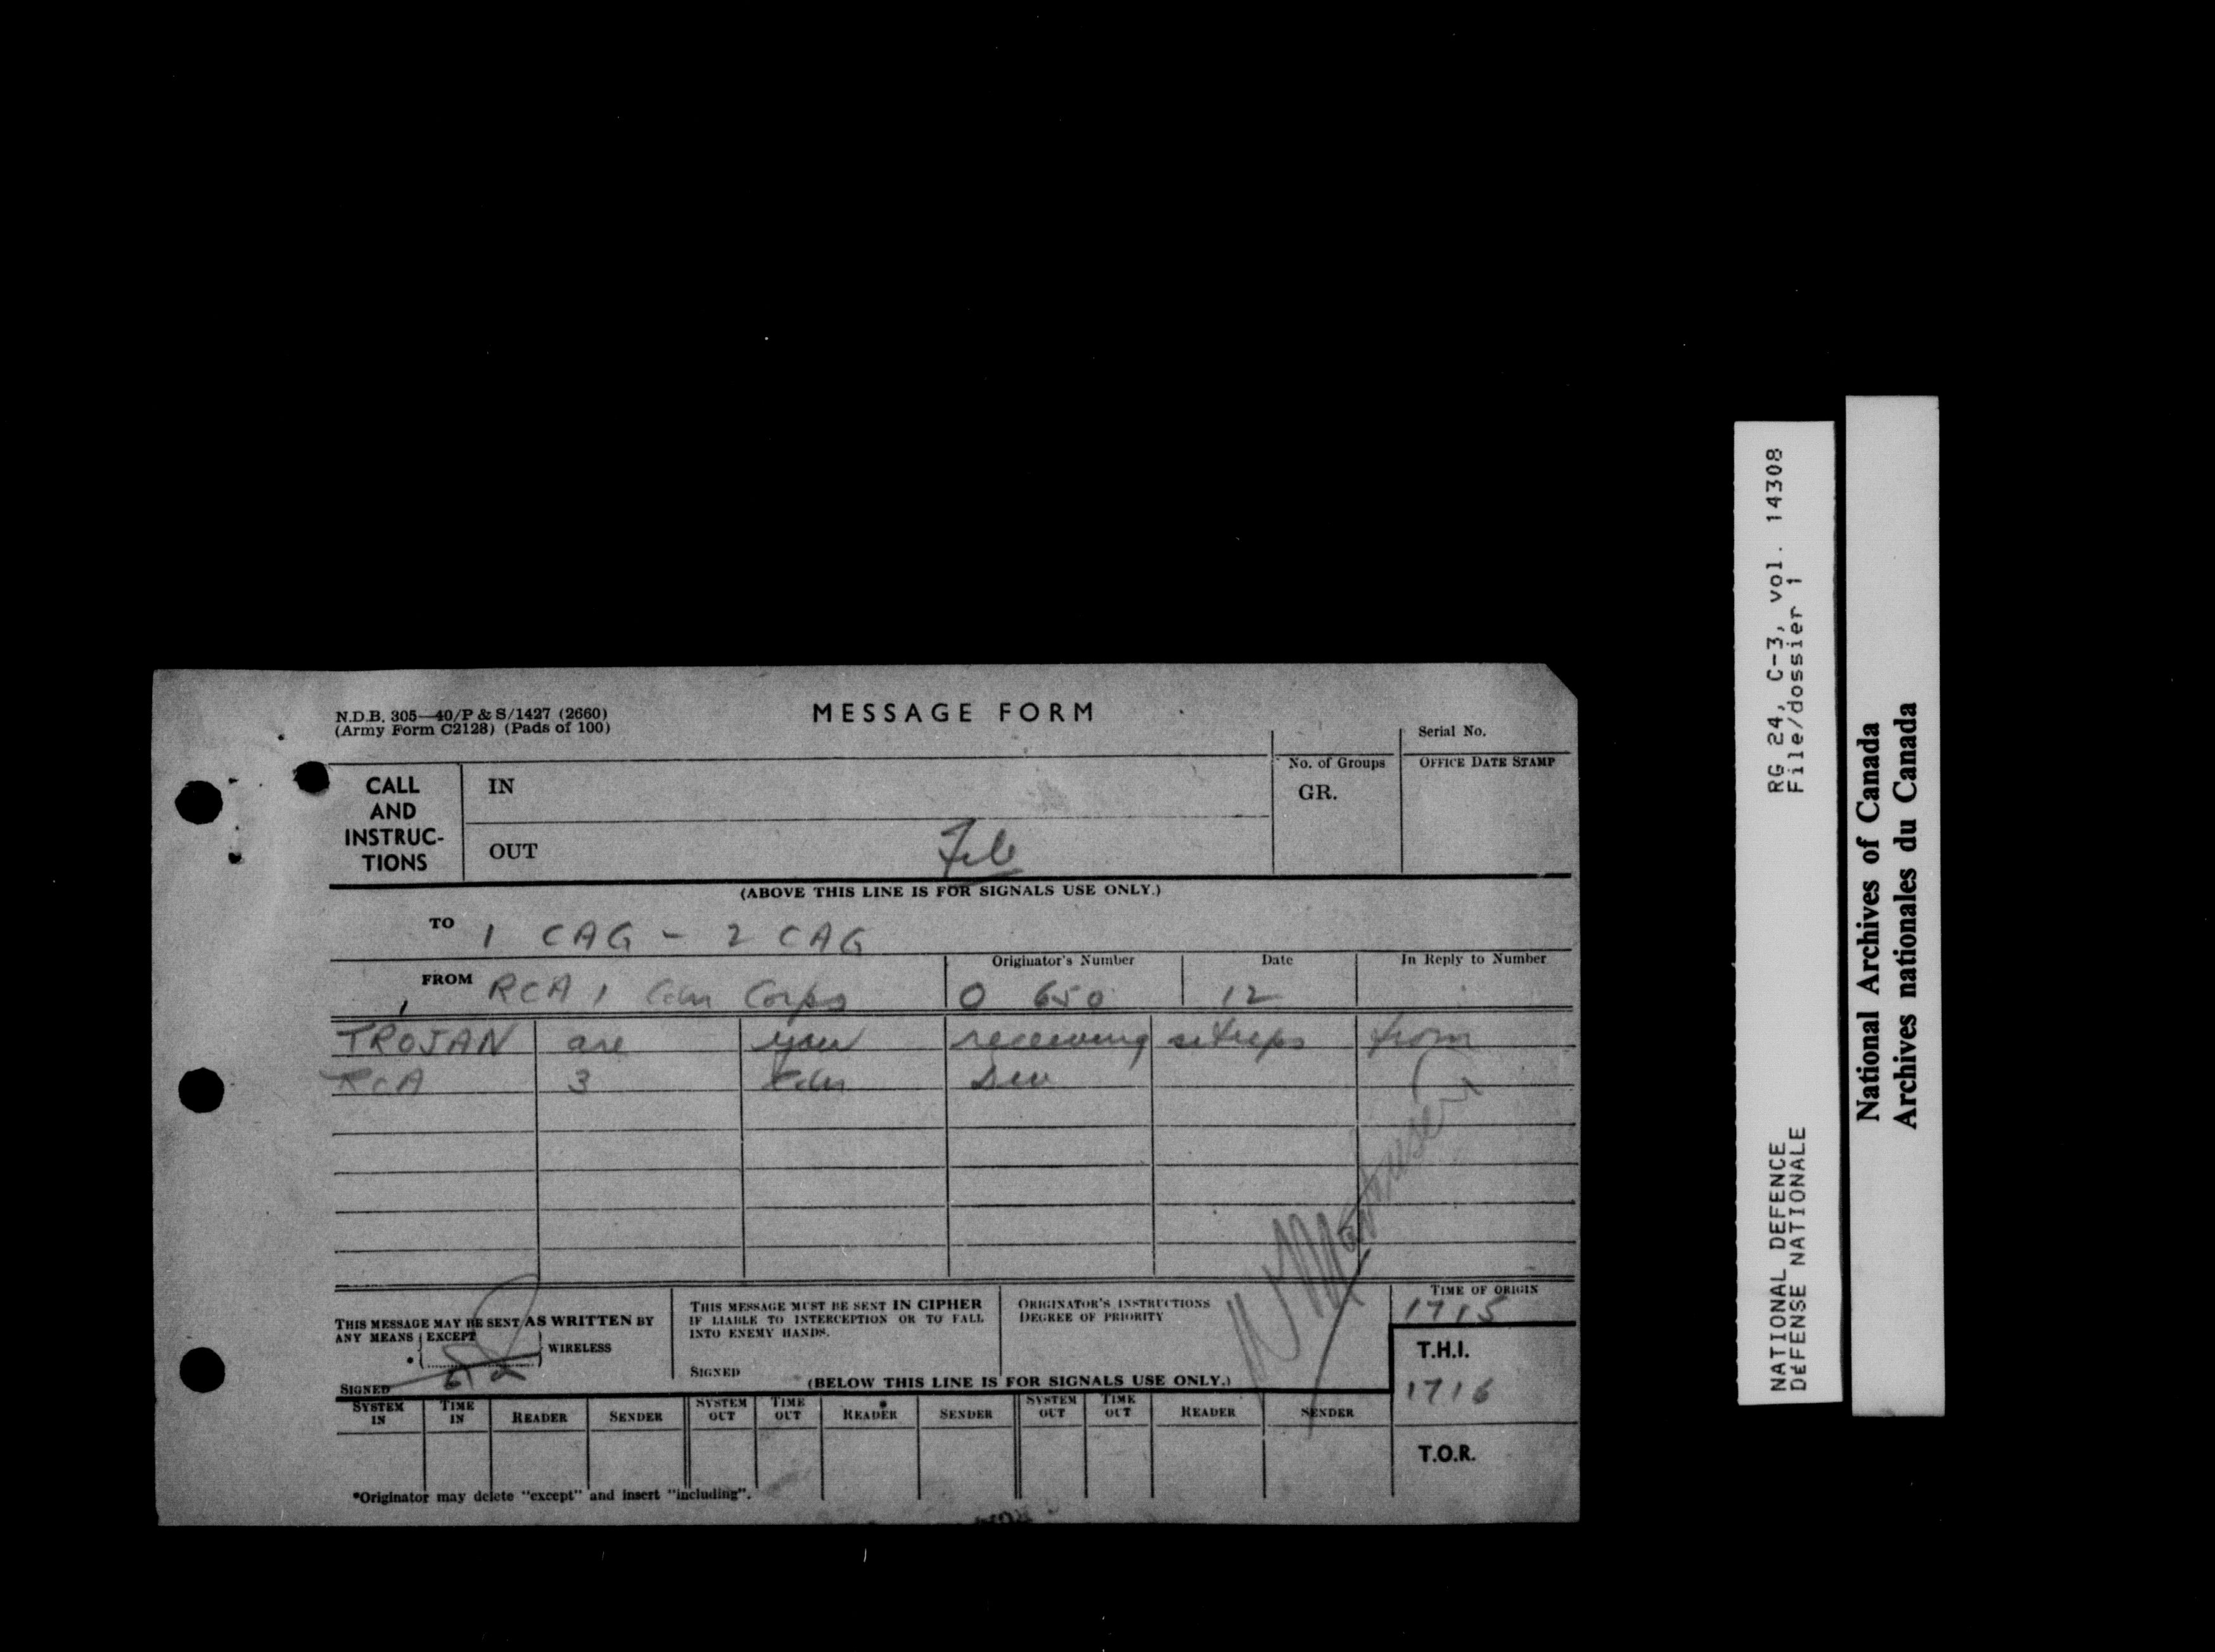 N.D.B. 305—40/P & S/1427 (2660)
(Army Form C2128) (Pads of 100)
MESSAGE FORM
Serial No.
CALL
AND
INSTRUC-
TIONS
IN
OUT
File
No. of Groups
GR.
OFFICE DATE STAMP
(ABOVE THIS LINE IS FOR SIGNALS USE ONLY.)
TO 1 CAG - 2 CAG
FROM RCA 1 Cdn Corps
Originator's Number
O 650
Date
12
In Reply to Number
TROJAN are you receiving sitreps from
RCA 3 Cdn Div
THIS MESSAGE MAY BE SENT AS WRITTEN BY
ANY MEANS EXCEPT
* WIRELESS
SIGNED
THIS MESSAGE MUST BE SENT IN CIPHER
IF LIABLE TO INTERCEPTION OR TO FALL
INTO ENEMY HANDS.
SIGNED
ORIGINATOR'S INSTRUCTIONS
DEGREE OF PRIORITY
TIME OF ORIGIN
1715
T.H.I.
1716
T.O.R.
(BELOW THIS LINE IS FOR SIGNALS USE ONLY.)
SYSTEM IN TIME IN READER SENDER SYSTEM OUT TIME OUT READER SENDER SYSTEM OUT TIME OUT READER SENDER
*Originator may delete "except" and insert "including".
NATIONAL DEFENCE RG 24, C-3, vol. 14308
DÉFENSE NATIONALE File/dossier 1
National Archives of Canada
Archives nationales du Canada